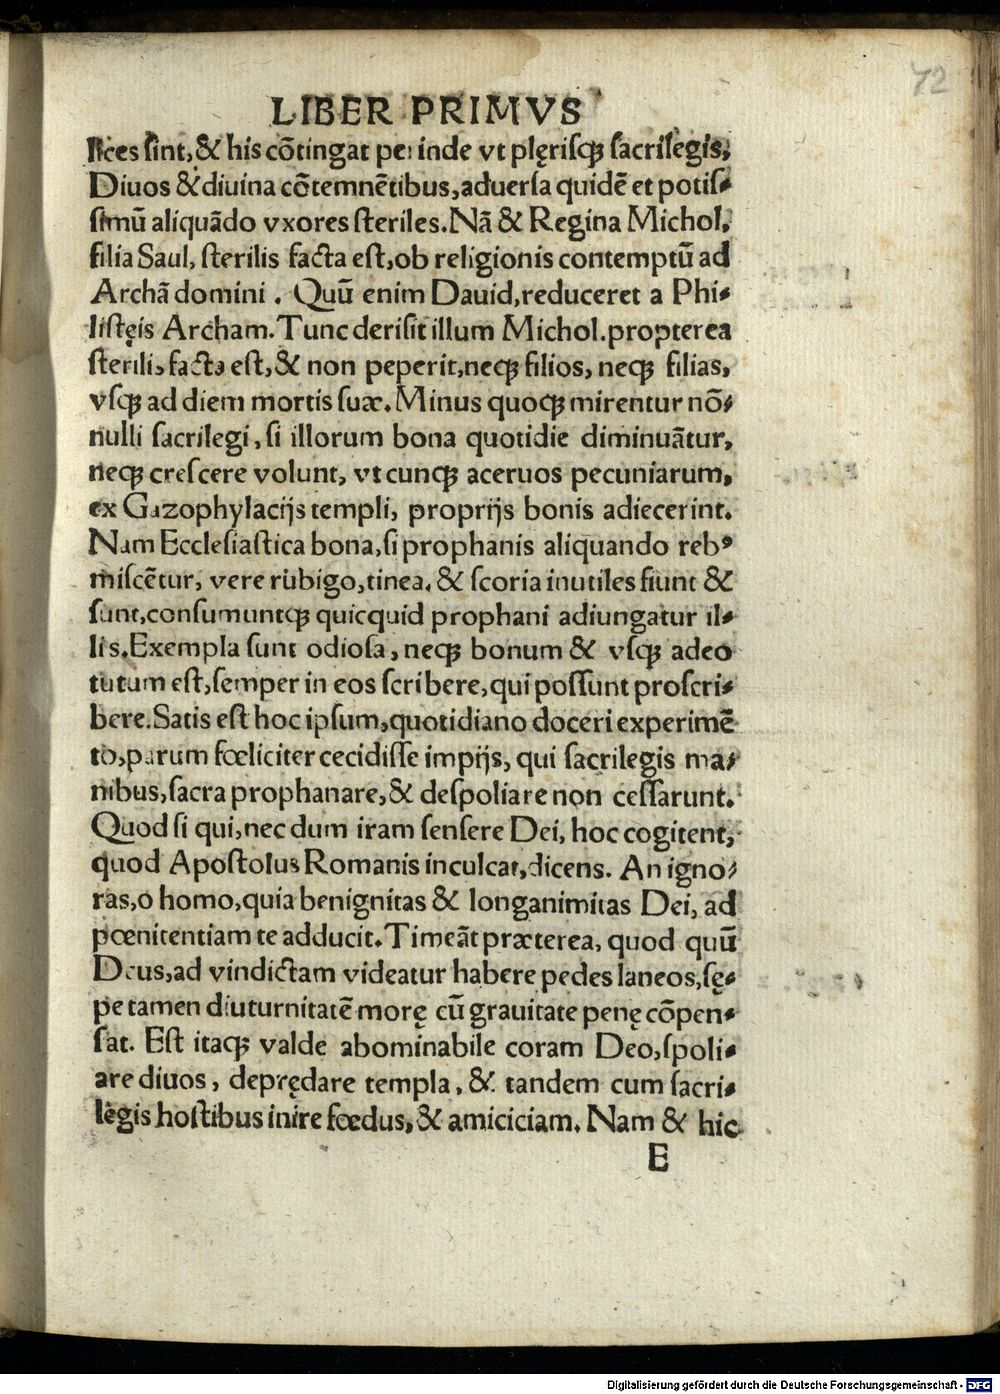 72
LIBER PRIMVS
lices ſint, & his cõtingat perinde vt plęriſqꝫ ſacrilegis,
Diuos & diuina cõtemnẽtibus, aduerſa quidẽ et potiſ-
ſimũ aliquãdo vxores ſteriles. Nã & Regina Michol,
filia Saul, ſterilis facta eſt, ob religionis contemptũ ad
Archã domini. Quũ enim Dauid, reduceret a Phi-
liſtęis Archam. Tunc deriſit illum Michol. propterea
ſterilis facta eſt, & non peperit, neqꝫ filios, neqꝫ filias,
vſqꝫ ad diem mortis ſuæ. Minus quoqꝫ mirentur nõ-
nulli ſacrilegi, ſi illorum bona quotidie diminuãtur,
neqꝫ creſcere volunt, vt cunqꝫ aceruos pecuniarum,
ex Gazophylacijs templi, proprijs bonis adiecerint.
Nam Eccleſiaſtica bona, ſi prophanis aliquando rebꝰ
miſcẽtur, vere rubigo, tinea, & ſcoria inutiles fiunt &
ſunt, conſumuntqꝫ quicquid prophani adiungatur il-
lis. Exempla ſunt odioſa, neqꝫ bonum & vſqꝫ adeo
tutum eſt, ſemper in eos ſcribere, qui poſſunt proſcri-
bere. Satis eſt hoc ipſum, quotidiano doceri experimẽ
to, parum fœliciter cecidiſſe impijs, qui ſacrilegis ma-
nibus, ſacra prophanare, & deſpoliare non ceſſarunt.
Quod ſi qui, nec dum iram ſenſere Dei, hoc cogitent,
quod Apoſtolus Romanis inculcat, dicens. An igno-
ras, o homo, quia benignitas & longanimitas Dei, ad
pœnitentiam te adducit. Timeãt præterea, quod quũ
Deus, ad vindictam videatur habere pedes laneos, ſę-
pe tamen diuturnitatẽ morę cũ grauitate penę cõpen-
ſat. Eſt itaqꝫ valde abominabile coram Deo, ſpoli-
are diuos, deprędare templa, & tandem cum ſacri-
legis hoſtibus inire fœdus, & amiciciam. Nam & hic
E
Digitalisierung gefördert durch die Deutsche Forschungsgemeinschaft - DFG